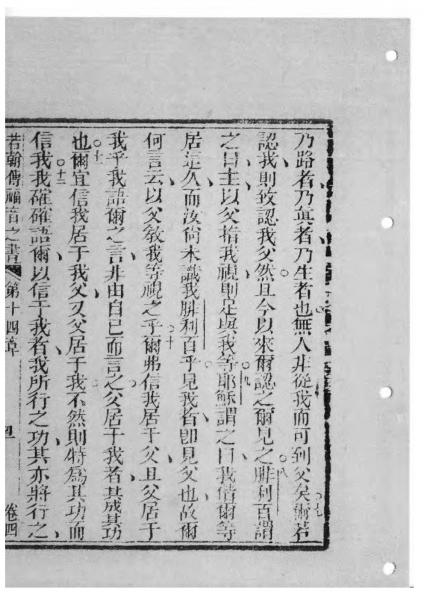 乃路者乃真者乃生者也無人非從我而可到父矣爾若
認我則致認我父然且今以來爾認之爾見之腓利百謂
之曰主以父指我視則足與我等耶穌謂之曰我偕爾等
居這久而汝尚未識我腓利百乎見我者即見父也故爾
何言云以父教我等視之乎爾弗信我居于父且父居于
我乎我語爾之言非由自已而言之父居于我者其成其功
也爾宜信我居于我父又父居于我不然則特為其功而
信我我確確語爾以信于我者我所行之功其亦將行之
若翰傳福音之書 第十四章 卷四
七
八
九
十
十一
十二